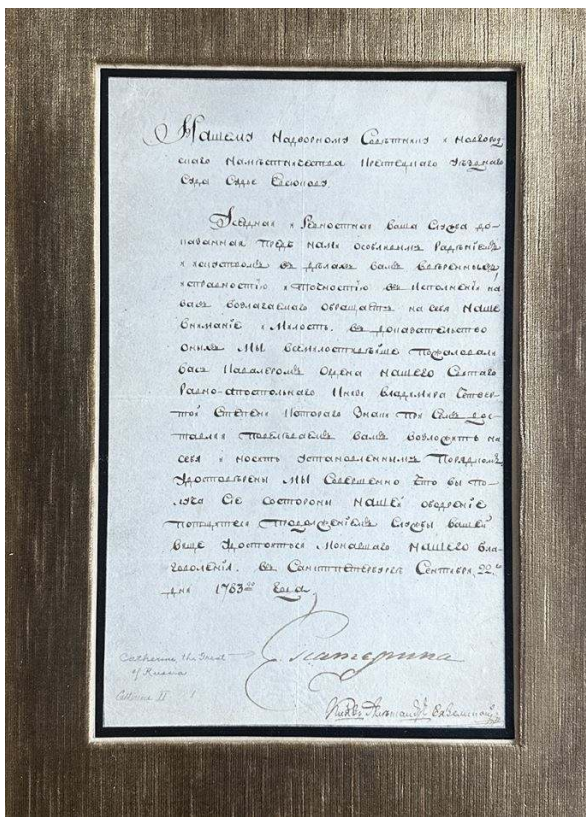 Нашему Надворному Совѣтнику и Новгород-
скаго Намѣстничества Уѣзднаго
Суда Судье
Усердная и Ревностная Ваша Служба до-
казанная предъ нами особливымъ Радѣніемъ
и искуствомъ въ дѣлахъ вамъ ввѣренныхъ,
исправностію и точностію въ исполненіи на
васъ возлагаемаго обращаетъ на себя Наше
Вниманіе и Милость. въ доказательство
оныхъ Мы всемилостивѣйше Пожаловали
васъ Кавалеромъ Ордена Нашего Святаго
Равно-апостольнаго Князя Владимира Четвер-
той Степени Котораго Знаки при Семъ дос-
тавляя Повелѣваемъ вамъ возложить на
себя и носить Установленнымъ Порядкомъ
Удостовѣрены Мы Совершенно что вы По-
луча Сіе состороны Нашей ободреніе
потщитеся продолженіемъ Службы вашей
вяще Удостоиться Монаршаго Нашего Бла-
говоленія. въ Санктпетербургѣ Сентября, 22.го
дня 1783го Года
Екатерина
Catherine the Great
of Russia
Catherine II